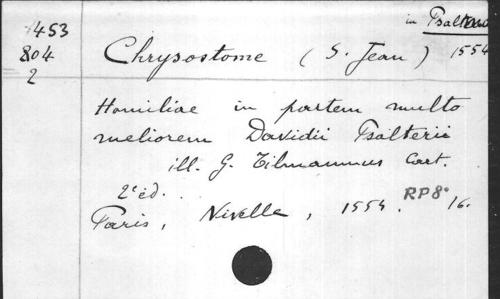 in Psalterio
453
804
2
Chrysostome (S. Jean) 1554
Homiliae in partem multo
meliorem Davidii Psalterii
ill. G. Tilmannus Cart.
2e éd.
Paris, Nivelle, 1554. RP8° 16.